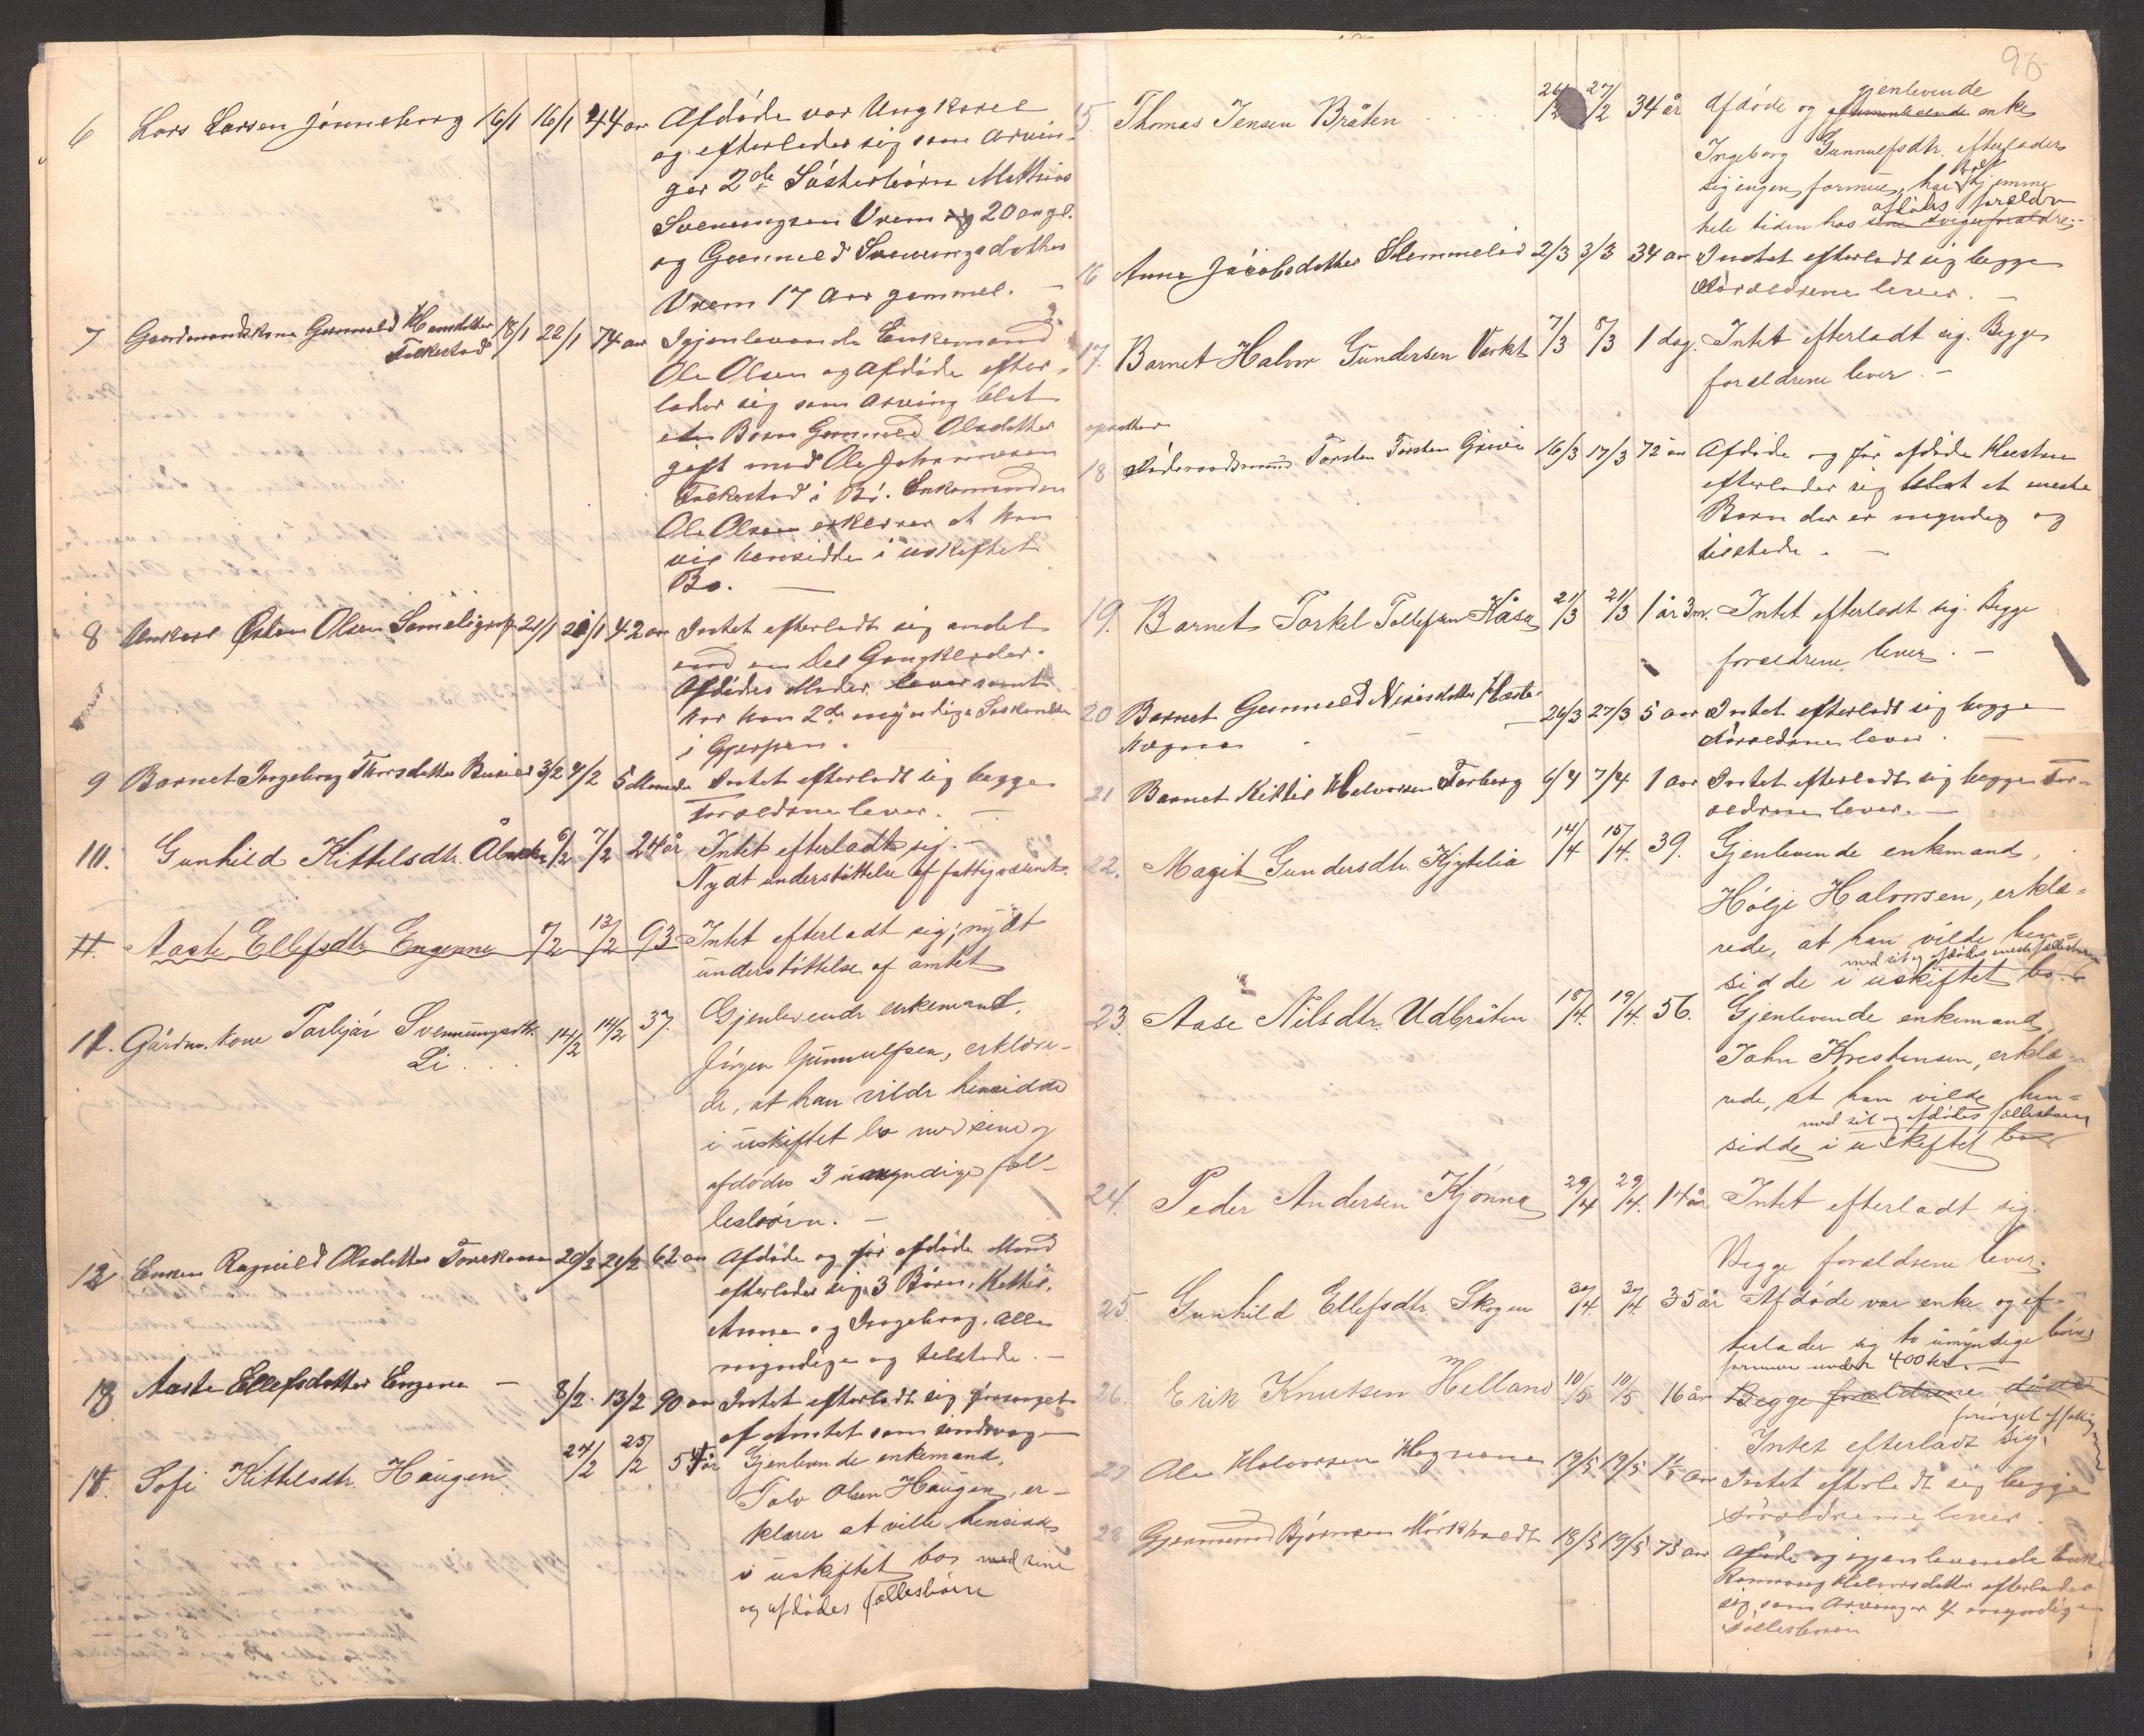 6 Lars Larsen Jønneborg 16/1 16/1 44 aar Afdøde var Ungkarl
og efterlader sig som Arvin-
ger 2de Søsterbørn Mathias
Svenungsen Vrem 20 aar gl.
og Gunnild Svenungsdatter
Vrem 17 Aar gammel. —
7 Gaardmandskone Gunnild Hansdatter 18/1 22/1 74 aar Igjenlevende Enkemand
Folkestad
Ole Olsen og Afdøde efter-
lader sig som Arving blot
et Barn Gunnild Olsdatter
gift med Ole Johannesen
Folkestad i Bø. Enkemanden
Ole Olsen erklerer at han
vil hensidde i uskiftet
Bo. —
8 Unkarl Østen Olsen 21/1 42 aar Intet efterladt sig andet
end en Del Gangkleder.
Afdødes Moder lever samt
har han 2de myndige Søskende
i Gjerpen.
9 Barnet Ingeborg Thorsdatter 3/2 4/2 5 Maaneder Intet efterladt sig begge
Foreldrene lever. —
10. Gunhild Kittelsdtr. 6/2 7/2 24 år Intet efterladt sig. —
Nydt understøttelse af fattigvæsenet.
11. Aaste Ellefsdtr. Engene 7/2 13/2 93 Intet efterladt sig; nydt
understøttelse af amtet
11. Gårdm. kone Torbjør Svennungsdtr. 14/2 14/2 37. Gjenlevende enkemand,
Li . . .
Jørgen Gunnulfsen, erklære-
de, at han vilde hensidde
i uskiftet bo med sine og
afdødes 3 umyndige fæl-
lesbørn. —
12 Enken Ragnild Olsdatter 20/2 21/2 62 aar Afdøde og før afdøde Mand
efterlader sig 3 Børn, Kittil,
Anne og Ingeborg. Alle
myndige og tilstede. —
13 Aaste Ellefsdatter Engene — 8/2 13/2 90 aar Intet efterladt sig forsørget
af Amtet som sindssvag
14. Sofi Kittelsdtr. Haugen 24/2 25/2 54 år Gjenlevende enkemand,
Talv Olsen Haugen, er-
klærer at ville hensidde
i uskiftet bo med sine
og afdødes fællesbørn
95
15 Thomas Jensen Bråten 26/2 27/2 34 år Afdøde og gjenlevende enke
Ingeborg Gunnulfsdtr. efterlader
sig ingen formue, har vært hjemme
hele tiden hos afdødes forældre
16 Anne Jacobsdatter Slemmelid 2/3 3/3 34 aar Intet efterladt sig begge
Foreldrene lever. —
17. Barnet Halvor Gundersen Verket 7/3 8/3 1 dag. Intet efterladt sig. Begge
forældrene lever. —
18 Føderaadsmand Torsten Torsten 16/3 17/3 72 aar Afdøde og før afdøde Hustru
efterlader sig blot et eneste
Barn der er myndig og
tilstede. —
19. Barnet Torkel Tollefsen Kåsa 21/3 21/3 1 år 3m. Intet efterladt sig. Begge
forældrene lever. —
20 Barnet Gunnild Nirisdatter Haste- 26/3 27/3 5 aar Intet efterladt sig begge
Foreldrene lever.
21 Barnet Kittil Halvorsen Forberg 6/4 7/4 1 aar Intet efterladt sig begge For-
eldrene lever. —
22. Magit Gundersdtr. Kjytelia 14/4 15/4 39. Gjenlevende enkemand,
Hølje Halvorsen, erklæ-
rede, at han vilde hen-
med sit og afdødes eneste fællesbarn
sidde i uskiftet bo.
23. Aase Nilsdtr. Udbråten 18/4. 19/4. 56. Gjenlevende enkemand
John Krestensen, erklæ-
rede, at han vilde hen-
med sit og afdødes fællesbarn
sidde i uskiftet bo
24. Peder Andersen Kjønna 29/4 29/4. 14 år Intet efterladt sig.
Begge forældrene lever.
25. Gunhild Ellefsdtr. Skogen 30/4. 30/4. 35 år Afdøde var enke og ef-
terlader sig to umyndige børn
formue under 400 kr. —
26. Erik Knutsen Helland 10/5 10/5 16 år Begge forældrene døde
Intet efterladt sig.
27 Ole Halvorsen 19/5 19/5 Intet efterladt sig begge
Foreldrene lever.
28 Gjermund Bjørnsen 18/5 19/5 73 aar Afdøde og igjenlevende Enke
Halvorsdatter efterlader
sig som Arvinger 4 myndige
Fellesbørn